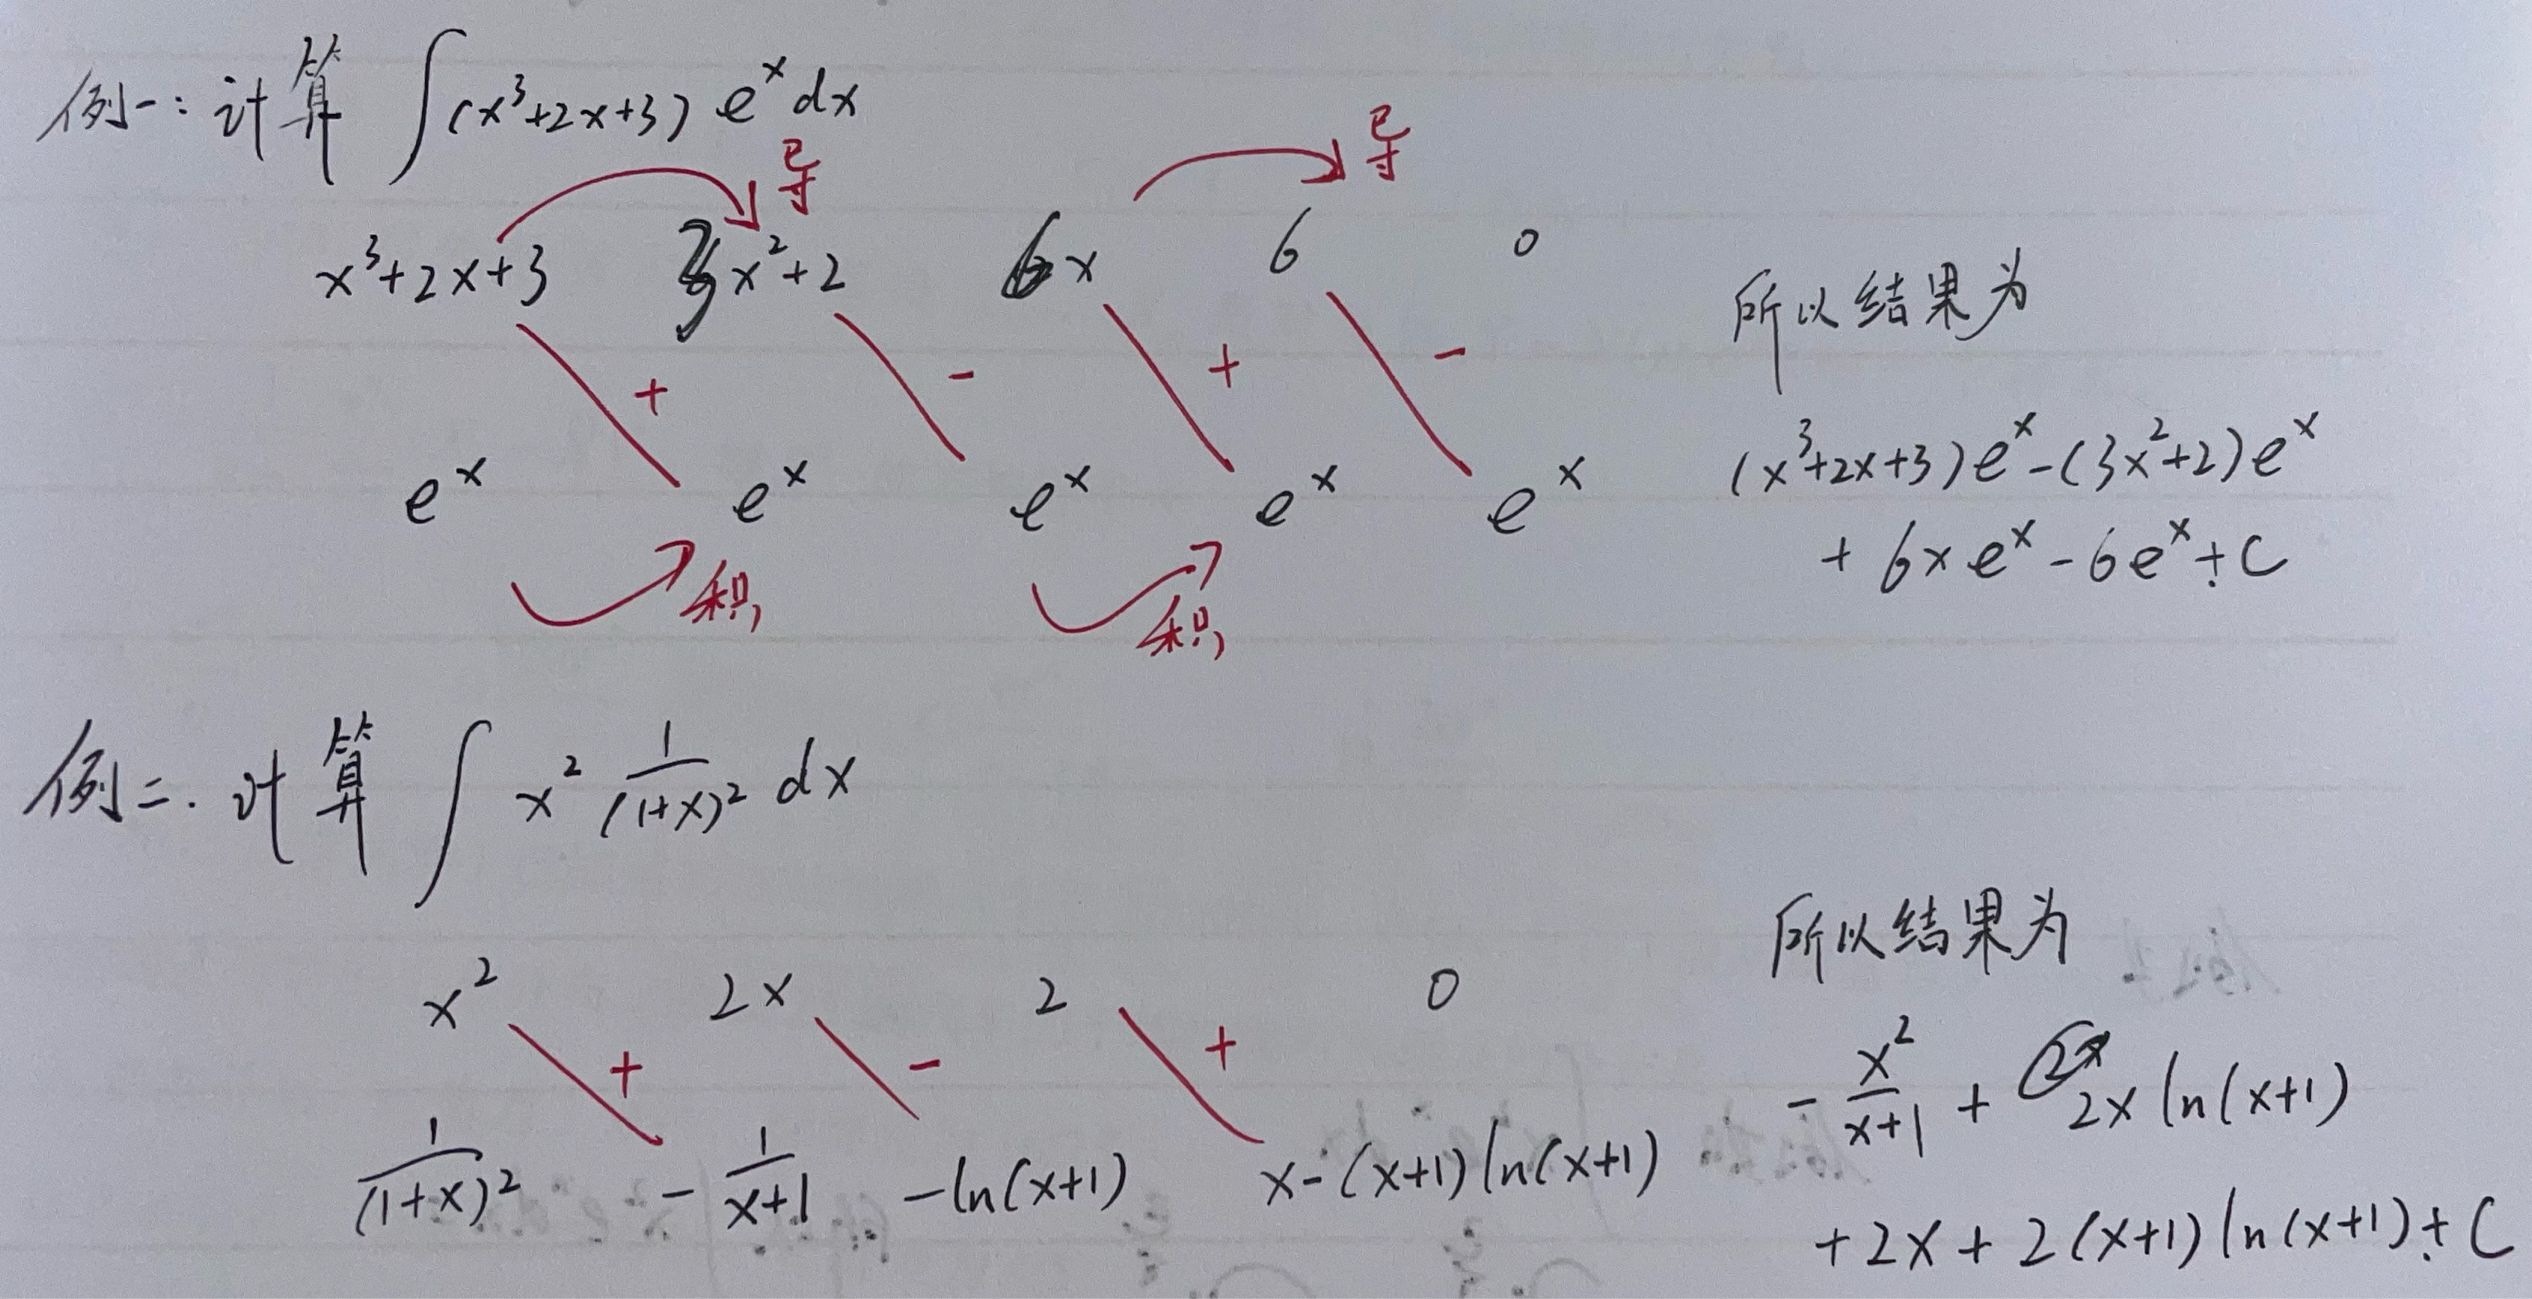 例一：计算 ∫(x³+2x+3) eˣ dx
导 导
x³+2x+3 3x²+2 6x 6 0
+ - + -
eˣ eˣ eˣ eˣ eˣ
积 积
所以结果为
(x³+2x+3)eˣ-(3x²+2)eˣ
+ 6x eˣ - 6eˣ + C
例二. 计算 ∫ x² 1/(1+x)² dx
x² 2x 2 0
+ - +
1/(1+x)² -1/(x+1) -ln(x+1) x-(x+1)ln(x+1)
所以结果为
- x²/(x+1) + 2x ln(x+1)
+2x + 2(x+1) ln(x+1) + C